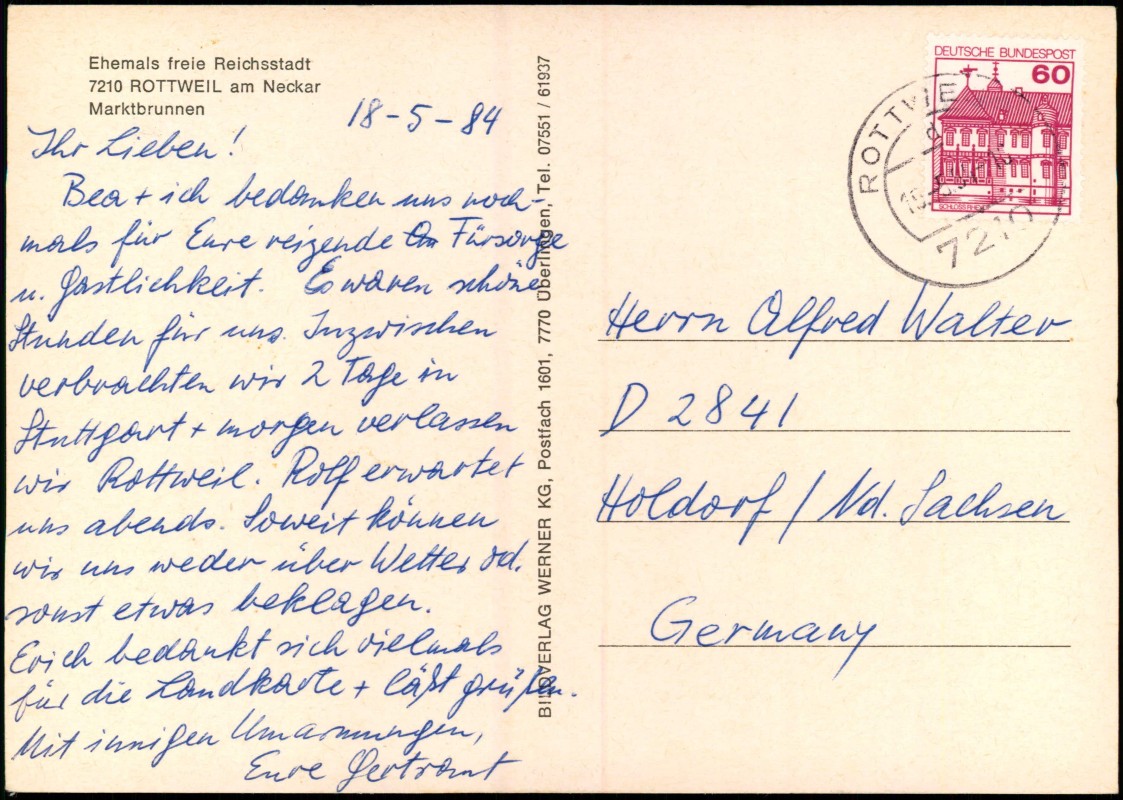 Ehemals freie Reichsstadt
7210 ROTTWEIL am Neckar
Marktbrunnen
18-5-84
Ihr Lieben!
Bea + ich bedanken uns noch-
mals für Eure reizende Fürsorge
u. Gastlichkeit. Es waren schöne
Stunden für uns. Inzwischen
verbrachten wir 2 Tage in
Stuttgart + morgen verlassen
wir Rottweil. Rolf erwartet
uns abends. Soweit können
wir uns weder über Wetter od.
sonst etwas beklagen.
Erich bedankt sich vielmals
für die Landkarte + läßt grüßen.
Mit innigen Umarmungen,
Eure Gertraut
BILDVERLAG WERNER KG, Postfach 1601, 7770 Überlingen, Tel. 07551 / 61937
DEUTSCHE BUNDESPOST
60
ROTTWE
7210
Herrn Alfred Walter
D 2841
Holdorf / Nd. Sachsen
Germany